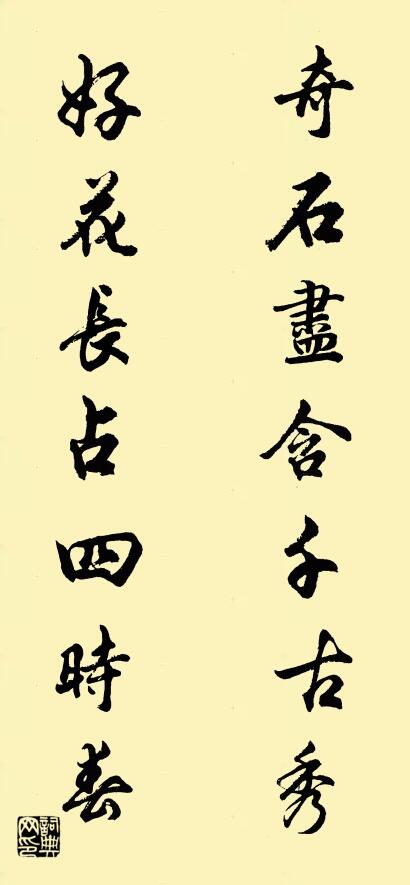 奇石盡含千古秀
好花長占四時春
詞典网印